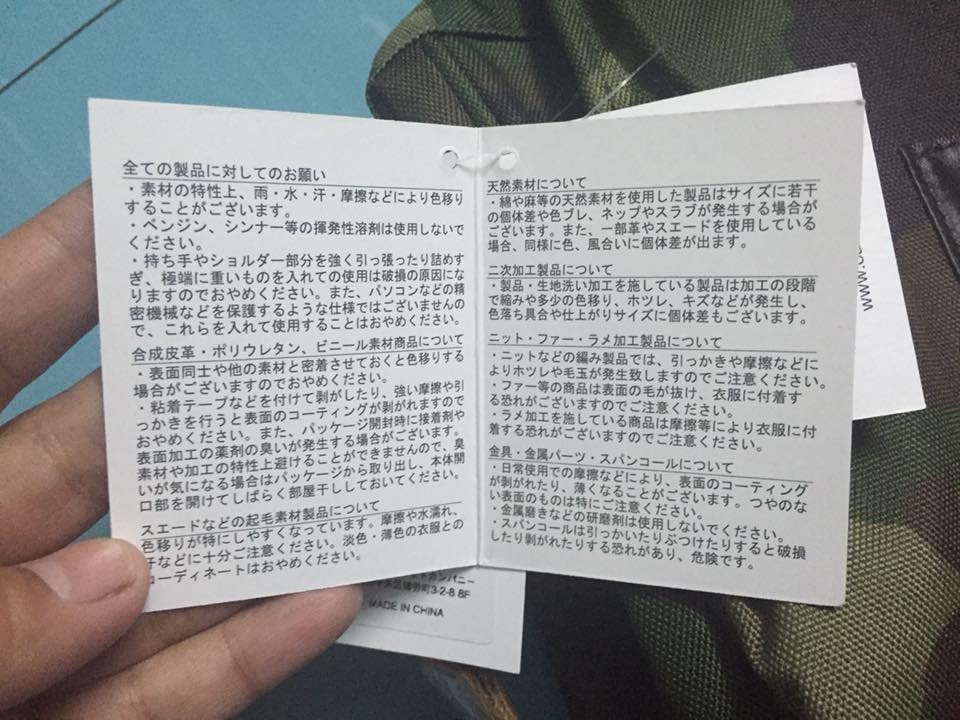 全ての製品に対してのお願い
・素材の特性上、雨・水・汗・摩擦などにより色移り
することがございます。
・ベンジン、シンナー等の揮発性溶剤は使用しないで
ください。
・持ち手やショルダー部分を強く引っ張ったり詰めす
ぎ、極端に重いものを入れての使用は破損の原因にな
りますのでおやめください。また、パソコンなどの精
密機械などを保護するような仕様ではございませんの
で、これらを入れて使用することはおやめください。
合成皮革・ポリウレタン、ビニール素材商品について
・表面同士や他の素材と密着させておくと色移りする
場合がございますのでおやめください。
・粘着テープなどを付けて剥がしたり、強い摩擦や引
っかきを行うと表面のコーティングが剥がれますので
おやめください。また、パッケージ開封時に接着剤や
表面加工の薬剤の臭いが発生する場合がございます。
素材や加工の特性上避けることができませんので、臭
いが気になる場合はパッケージから取り出し、本体開
口部を開けてしばらく部屋干ししておいてください。
スエードなどの起毛素材製品について
・色移りが特にしやすくなっています。摩擦や水濡れ、
汗などに十分ご注意ください。淡色・薄色の衣服との
コーディネートはおやめください。
天然素材について
・綿や麻等の天然素材を使用した製品はサイズに若干
の個体差や色ブレ、ネップやスラブが発生する場合が
ございます。また、一部革やスエードを使用している
場合、同様に色、風合いに個体差が出ます。
二次加工製品について
・製品・生地洗い加工を施している製品は加工の段階
で縮みや多少の色移り、ホツレ、キズなどが発生し、
色落ち具合や仕上がりサイズに個体差もございます。
ニット・ファー・ラメ加工製品について
・ニットなどの編み製品では、引っかきや摩擦などに
よりホツレや毛玉が発生致しますのでご注意ください。
・ファー等の商品は表面の毛が抜け、衣服に付着す
る恐れがございますのでご注意ください。
・ラメ加工を施している商品は摩擦等により衣服に付
着する恐れがございますのでご注意ください。
金具・金属パーツ・スパンコールについて
・日常使用での摩擦などにより、表面のコーティング
が剥がれたり、薄くなることがございます。つやのな
い表面のものは特にご注意ください。
・金属磨きなどの研磨剤は使用しないでください。
・スパンコールは引っかいたりぶつけたりすると破損
したり剥がれたりする恐れがあり、危険です。
カンパニー
3-2-8 8F
MADE IN CHINA
www.